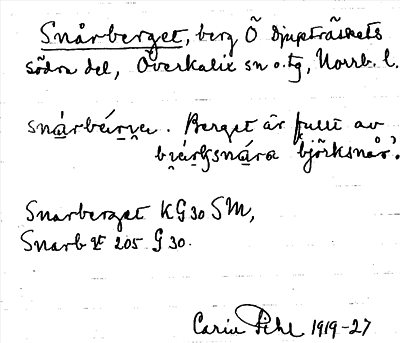 Snårberget, berg Ö Djupträskets
södra del, Överkalix sn o. tg, Norrb. l.
Berget är fullt av
björksnår.
Snarberget KG30 SM,
Snarb 205 G30.
Carin Pihl 1919-27